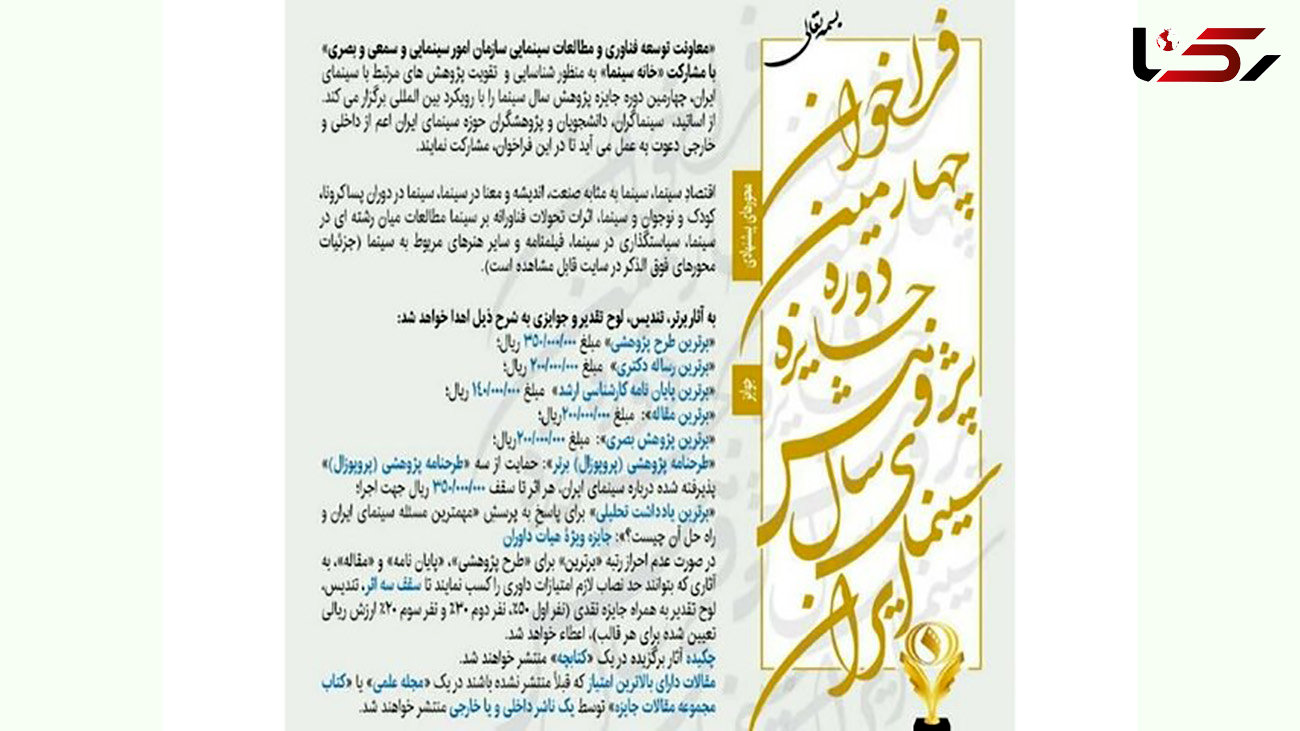 بسمه تعالی
فراخوان
چهارمین
دوره
جایزه
پژوهش
سال
سینمای
ایران
رکنا
«معاونت توسعه فناوری و مطالعات سینمایی سازمان امور سینمایی و سمعی و بصری»
با مشارکت «خانه سینما» به منظور شناسایی و تقویت پژوهش های مرتبط با سینمای
ایران، چهارمین دوره جایزه پژوهش سال سینما را با رویکرد بین المللی برگزار می کند.
از اساتید، سینماگران، دانشجویان و پژوهشگران حوزه سینمای ایران اعم از داخلی و
خارجی دعوت به عمل می آید تا در این فراخوان، مشارکت نمایند.
محورهای پیشنهادی
اقتصاد سینما، سینما به مثابه صنعت، اندیشه و معنا در سینما، سینما در دوران پساکرونا،
کودک و نوجوان و سینما، اثرات تحولات فناورانه بر سینما مطالعات میان رشته ای در
سینما، سیاستگذاری در سینما، فیلمنامه و سایر هنرهای مربوط به سینما (جزئیات
محورهای فوق الذکر در سایت قابل مشاهده است).
جوایز
به آثار برتر، تندیس، لوح تقدیر و جوایزی به شرح ذیل اهدا خواهد شد:
«برترین طرح پژوهشی» مبلغ ۳۵۰/۰۰۰/۰۰۰ ریال؛
«برترین رساله دکتری» مبلغ ۲۰۰/۰۰۰/۰۰۰ ریال؛
«برترین پایان نامه کارشناسی ارشد» مبلغ ۱۴۰/۰۰۰/۰۰۰ ریال؛
«برترین مقاله»: مبلغ ۲۰۰/۰۰۰/۰۰۰ریال؛
«برترین پژوهش بصری»: مبلغ ۲۰۰/۰۰۰/۰۰۰ریال؛
«طرحنامه پژوهشی (پروپوزال) برتر»: حمایت از سه «طرحنامه پژوهشی (پروپوزال)»
پذیرفته شده درباره سینمای ایران، هر اثر تا سقف ۳۵۰/۰۰۰/۰۰۰ ریال جهت اجرا؛
«برترین یادداشت تحلیلی» برای پاسخ به پرسش «مهمترین مسئله سینمای ایران و
راه حل آن چیست؟»: جایزه ویژهٔ هیات داوران
در صورت عدم احراز رتبه «برترین» برای «طرح پژوهشی»، «پایان نامه» و «مقاله»، به
آثاری که بتوانند حد نصاب لازم امتیازات داوری را کسب نمایند تا سقف سه اثر، تندیس،
لوح تقدیر به همراه جایزه نقدی (نفر اول ۵۰٪، نفر دوم ۳۰٪ و نفر سوم ۲۰٪ ارزش ریالی
تعیین شده برای هر قالب)، اعطاء خواهد شد.
چکیده آثار برگزیده در یک «کتابچه» منتشر خواهند شد.
مقالات دارای بالاترین امتیاز که قبلاً منتشر نشده باشند در یک «مجله علمی» یا «کتاب
مجموعه مقالات جایزه» توسط یک ناشر داخلی و یا خارجی منتشر خواهند شد.